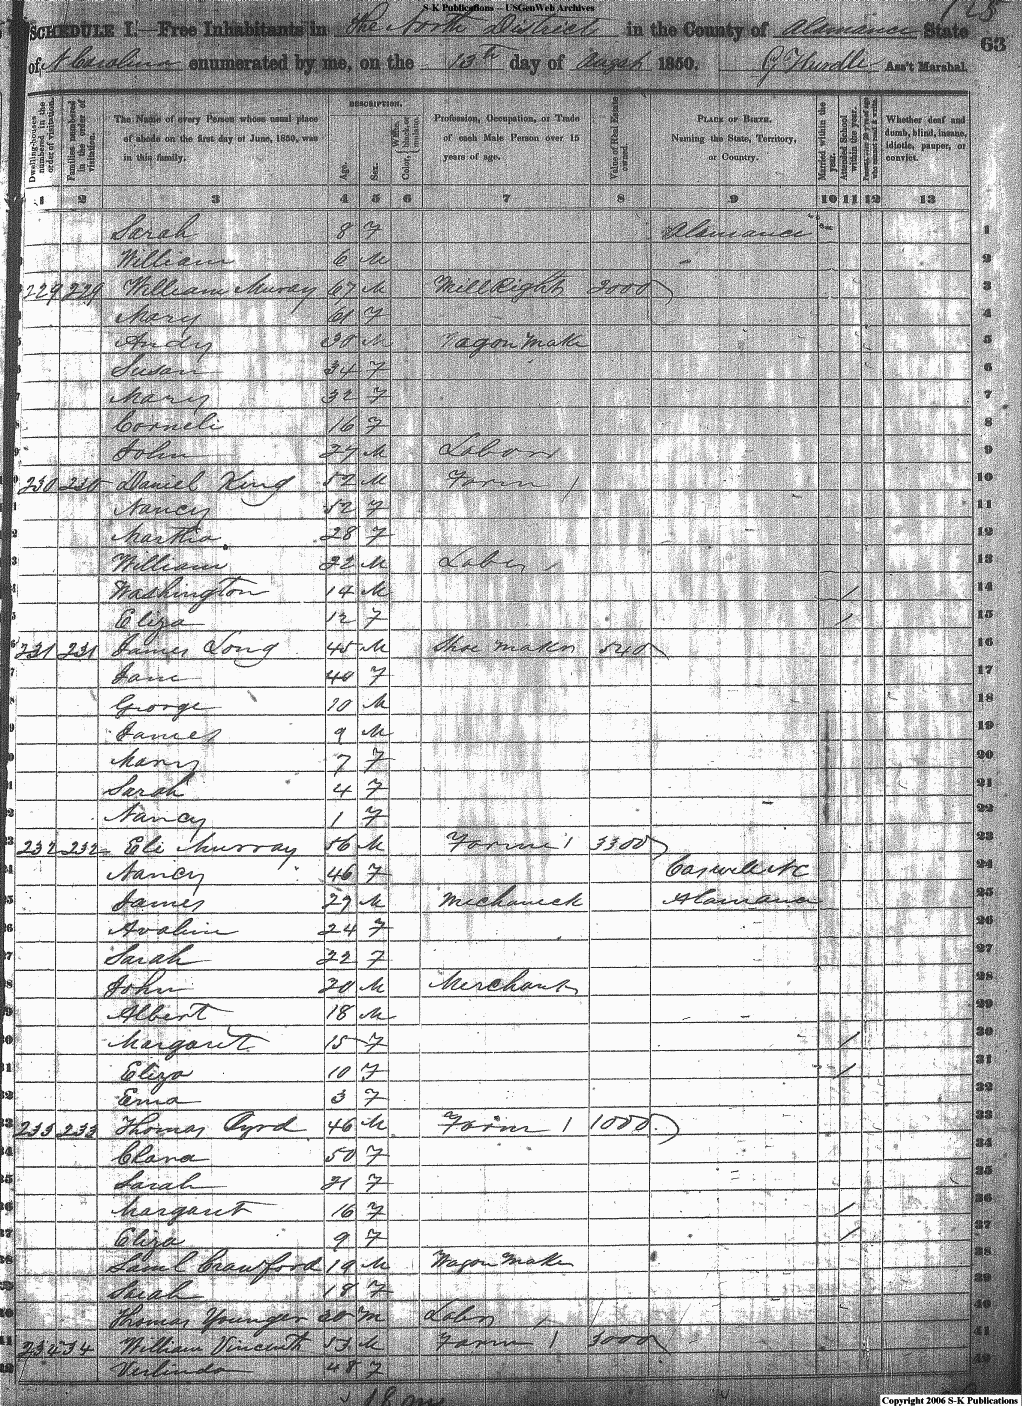 S-K Publications -- USGenWeb Archives
125
SCHEDULE I.—Free Inhabitants in The North District in the County of Alamance State 63
of N Carolina enumerated by me, on the 13th day of August 1850. G Hurdle Ass't Marshal.
Dwelling-houses numbered in the order of visitation.
Families numbered in the order of visitation.
The Name of every Person whose usual place of abode on the first day of June, 1850, was in this family.
DESCRIPTION.
Age.
Sex.
Color, White, black, or mulatto.
Profession, Occupation, or Trade of each Male Person over 15 years of age.
Value of Real Estate owned.
PLACE OF BIRTH. Naming the State, Territory, or Country.
Married within the year.
Attended School within the year.
Persons over 20 y'rs of age who cannot read & write.
Whether deaf and dumb, blind, insane, idiotic, pauper, or convict.
1 2 3 4 5 6 7 8 9 10 11 12 13
Sarah 8 F Alamance " 1
William 6 M 2
229 229 William Murray 67 M MillRight 2000 3
Mary 61 F 4
Andy 30 M Wagon Make 5
Susan 34 F 6
Mary 32 F 7
Corneli 16 F 8
John 27 M Labor 9
230 230 Daniel King 52 M Farm 10
Nancy 52 F 11
Martha 28 F 12
William 22 M Labor 13
Washington 14 M / 14
Eliza 12 F / 15
231 231 James Long 45 M Shoe Maker 540 16
Jane 40 F 17
George 20 M 18
James 9 M 19
Mary 7 F 20
Sarah 4 F 21
Nancy 1 F 22
232 232 Eli Murray 56 M Farme 3300 23
Nancy 46 F Caswell NC 24
James 29 M Mechaneck Alamance 25
Avaline 24 F 26
Sarah 22 F 27
John 20 M Merchant 28
Albert 18 M 29
Margaret 15 F / 30
Eliza 10 F / 31
Ema 3 F 32
233 233 Thomas Byrd 46 M Farm 1000 33
Clara 50 F 34
Sarah 21 F 35
Margaret 16 F / 36
Eliza 9 F / 37
Saml Crawford 19 M Wagon Make 38
Sarah 18 F 39
Thomas Younger 20 M Labor 40
234 234 William Vincent 53 M Farm 3000 41
Verlinda 48 F 42
18
Copyright 2006 S-K Publications